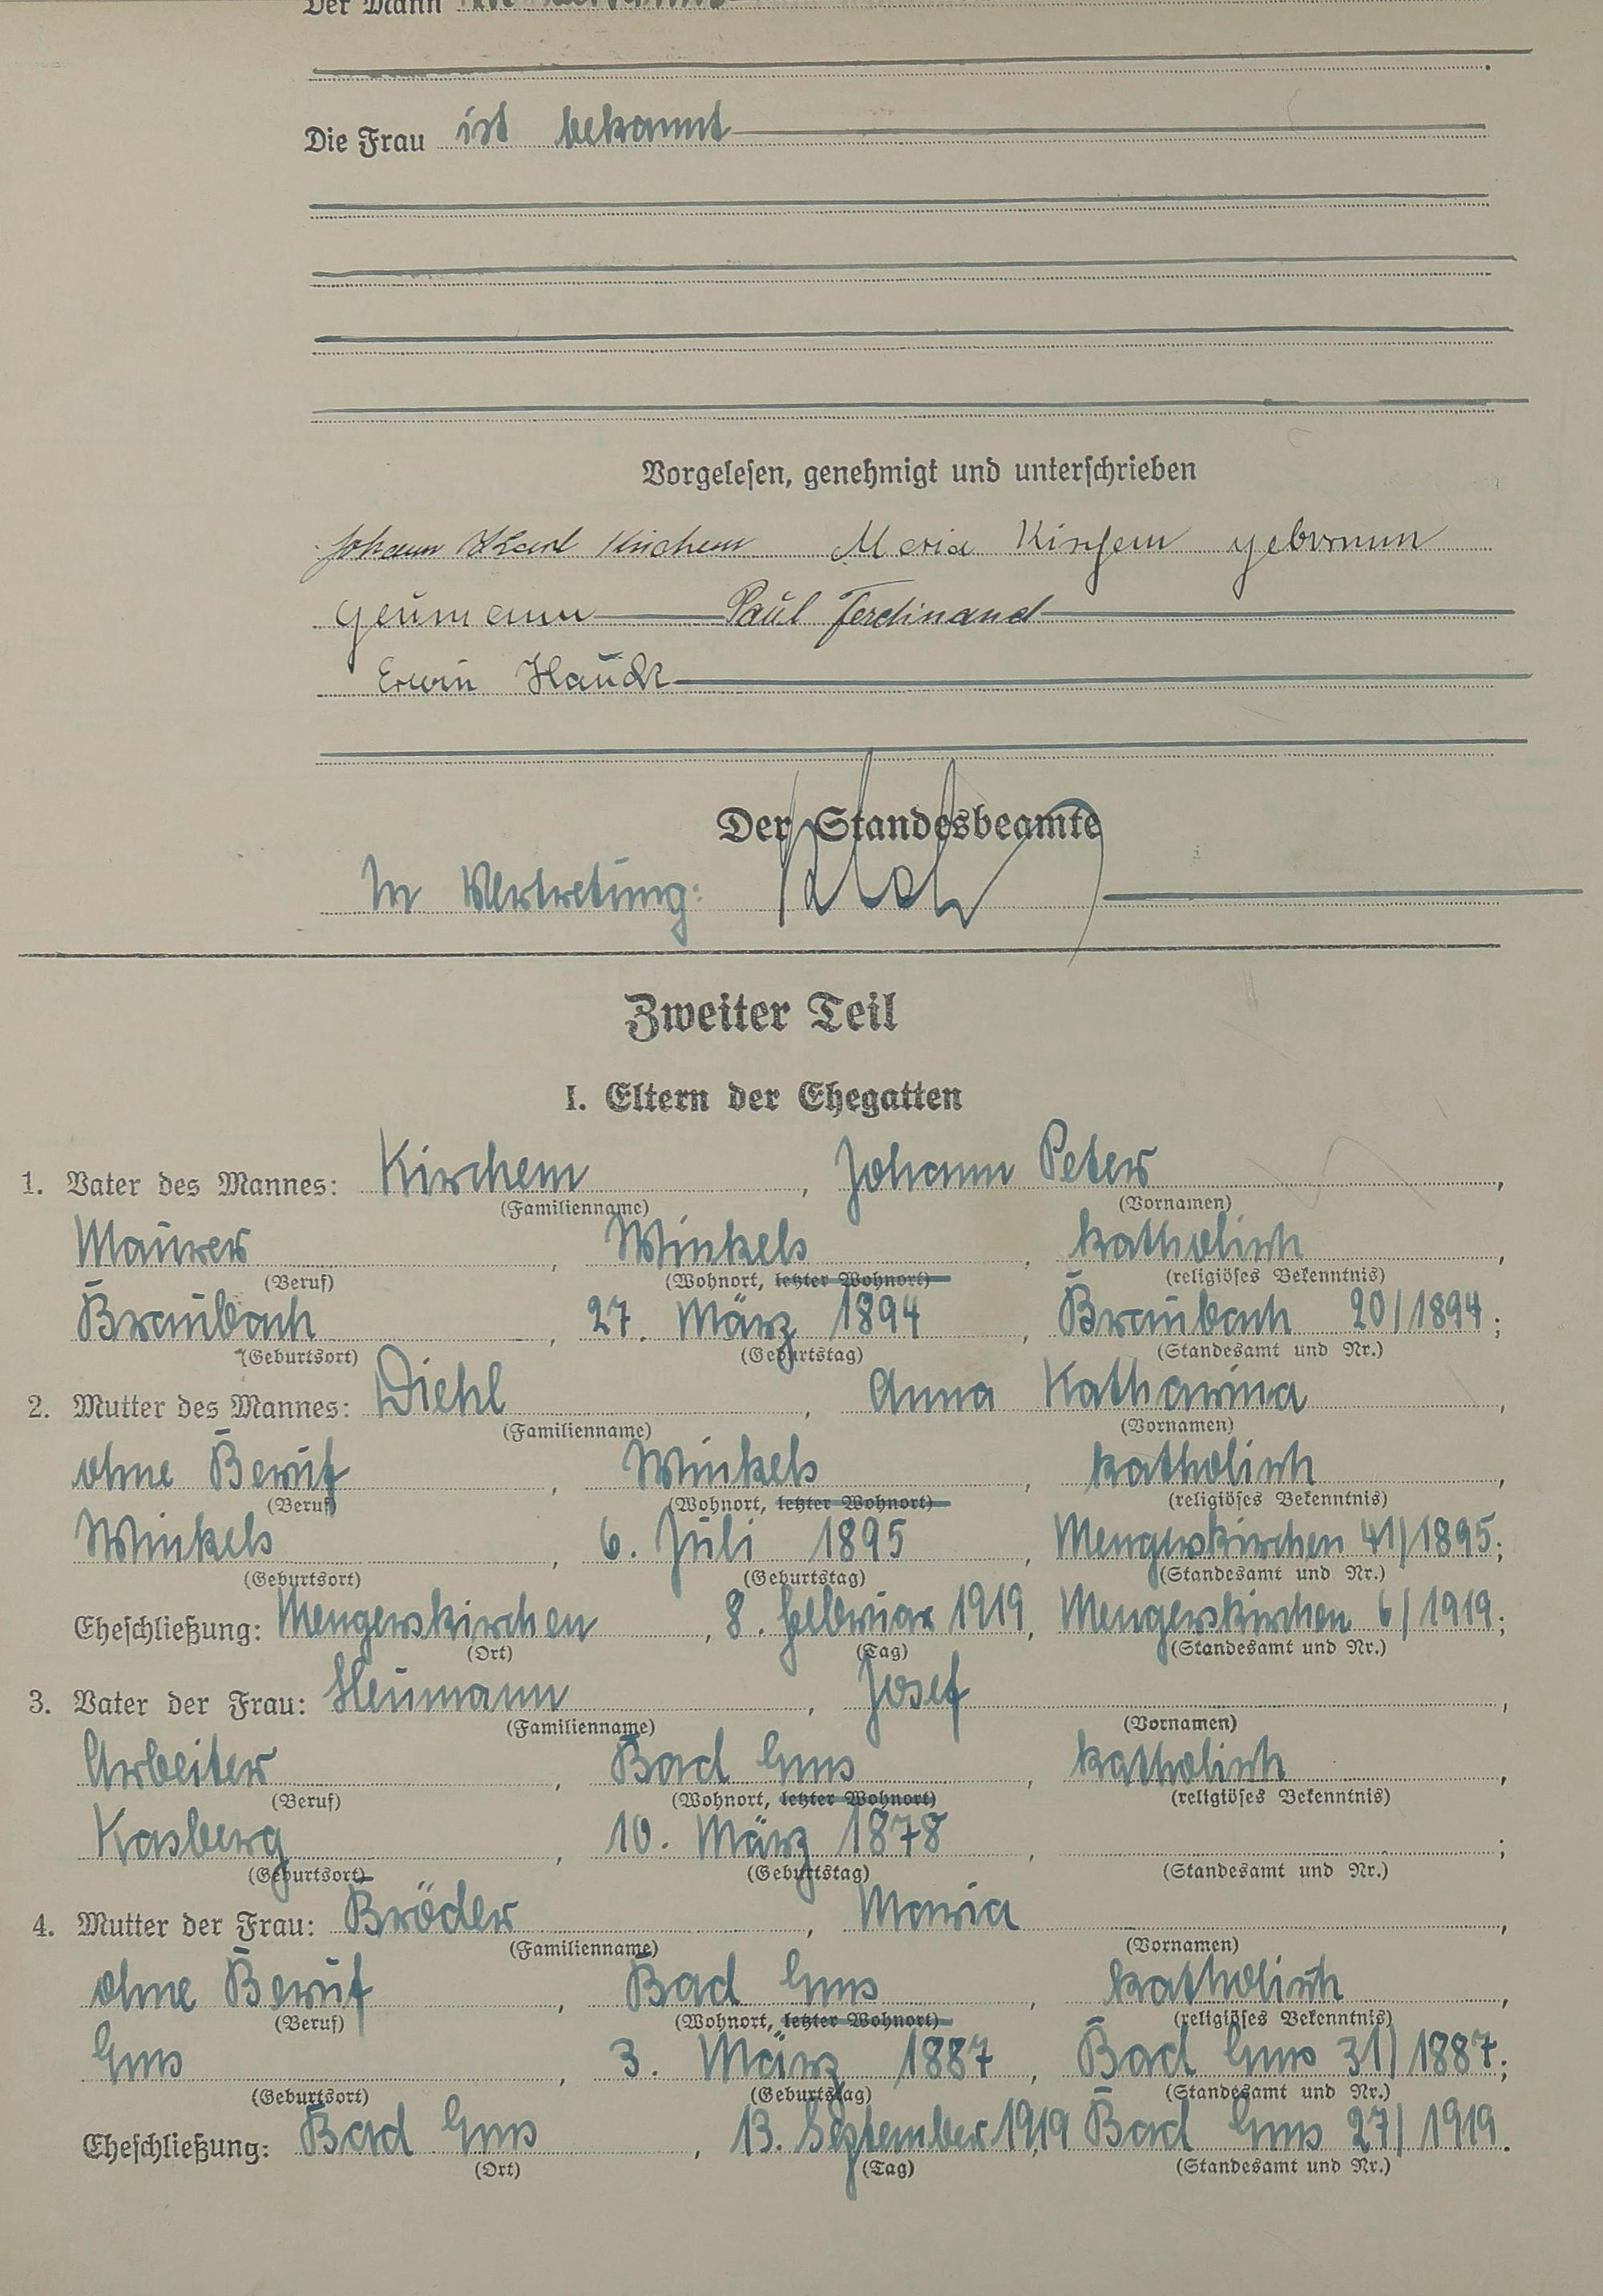 Der Mann
Die Frau ist bekannt
Vorgelesen, genehmigt und unterschrieben
Johann Karl Kirchem Maria Kirchem geborenen
Heumann Paul Ferdinand
Erwin Hauck
Der Standesbeamte
In Vertretung:
Zweiter Teil
I. Eltern der Ehegatten
1. Vater des Mannes: Kirchem, Johann Peter,
(Familienname) (Vornamen)
Maurer, Winkels, katholisch,
(Beruf) (Wohnort, letzter Wohnort) (religiöses Bekenntnis)
Braubach, 27. März 1894, Braubach 20/1894;
(Geburtsort) (Geburtstag) (Standesamt und Nr.)
2. Mutter des Mannes: Diehl, Anna Katharina,
(Familienname) (Vornamen)
ohne Beruf, Winkels, katholisch,
(Beruf) (Wohnort, letzter Wohnort) (religiöses Bekenntnis)
Winkels, 6. Juli 1895, Mengerskirchen 41/1895;
(Geburtsort) (Geburtstag) (Standesamt und Nr.)
Eheschließung: Mengerskirchen, 8. Februar 1919, Mengerskirchen 6/1919;
(Ort) (Tag) (Standesamt und Nr.)
3. Vater der Frau: Heumann, Josef,
(Familienname) (Vornamen)
Arbeiter, Bad Ems, katholisch,
(Beruf) (Wohnort, letzter Wohnort) (religiöses Bekenntnis)
Kasberg, 10. März 1878, ;
(Geburtsort) (Geburtstag) (Standesamt und Nr.)
4. Mutter der Frau: Bröder, Maria,
(Familienname) (Vornamen)
ohne Beruf, Bad Ems, katholisch,
(Beruf) (Wohnort, letzter Wohnort) (religiöses Bekenntnis)
Ems, 3. März 1887, Bad Ems 31/1887;
(Geburtsort) (Geburtstag) (Standesamt und Nr.)
Eheschließung: Bad Ems, 13. September 1919, Bad Ems 27/1919.
(Ort) (Tag) (Standesamt und Nr.)